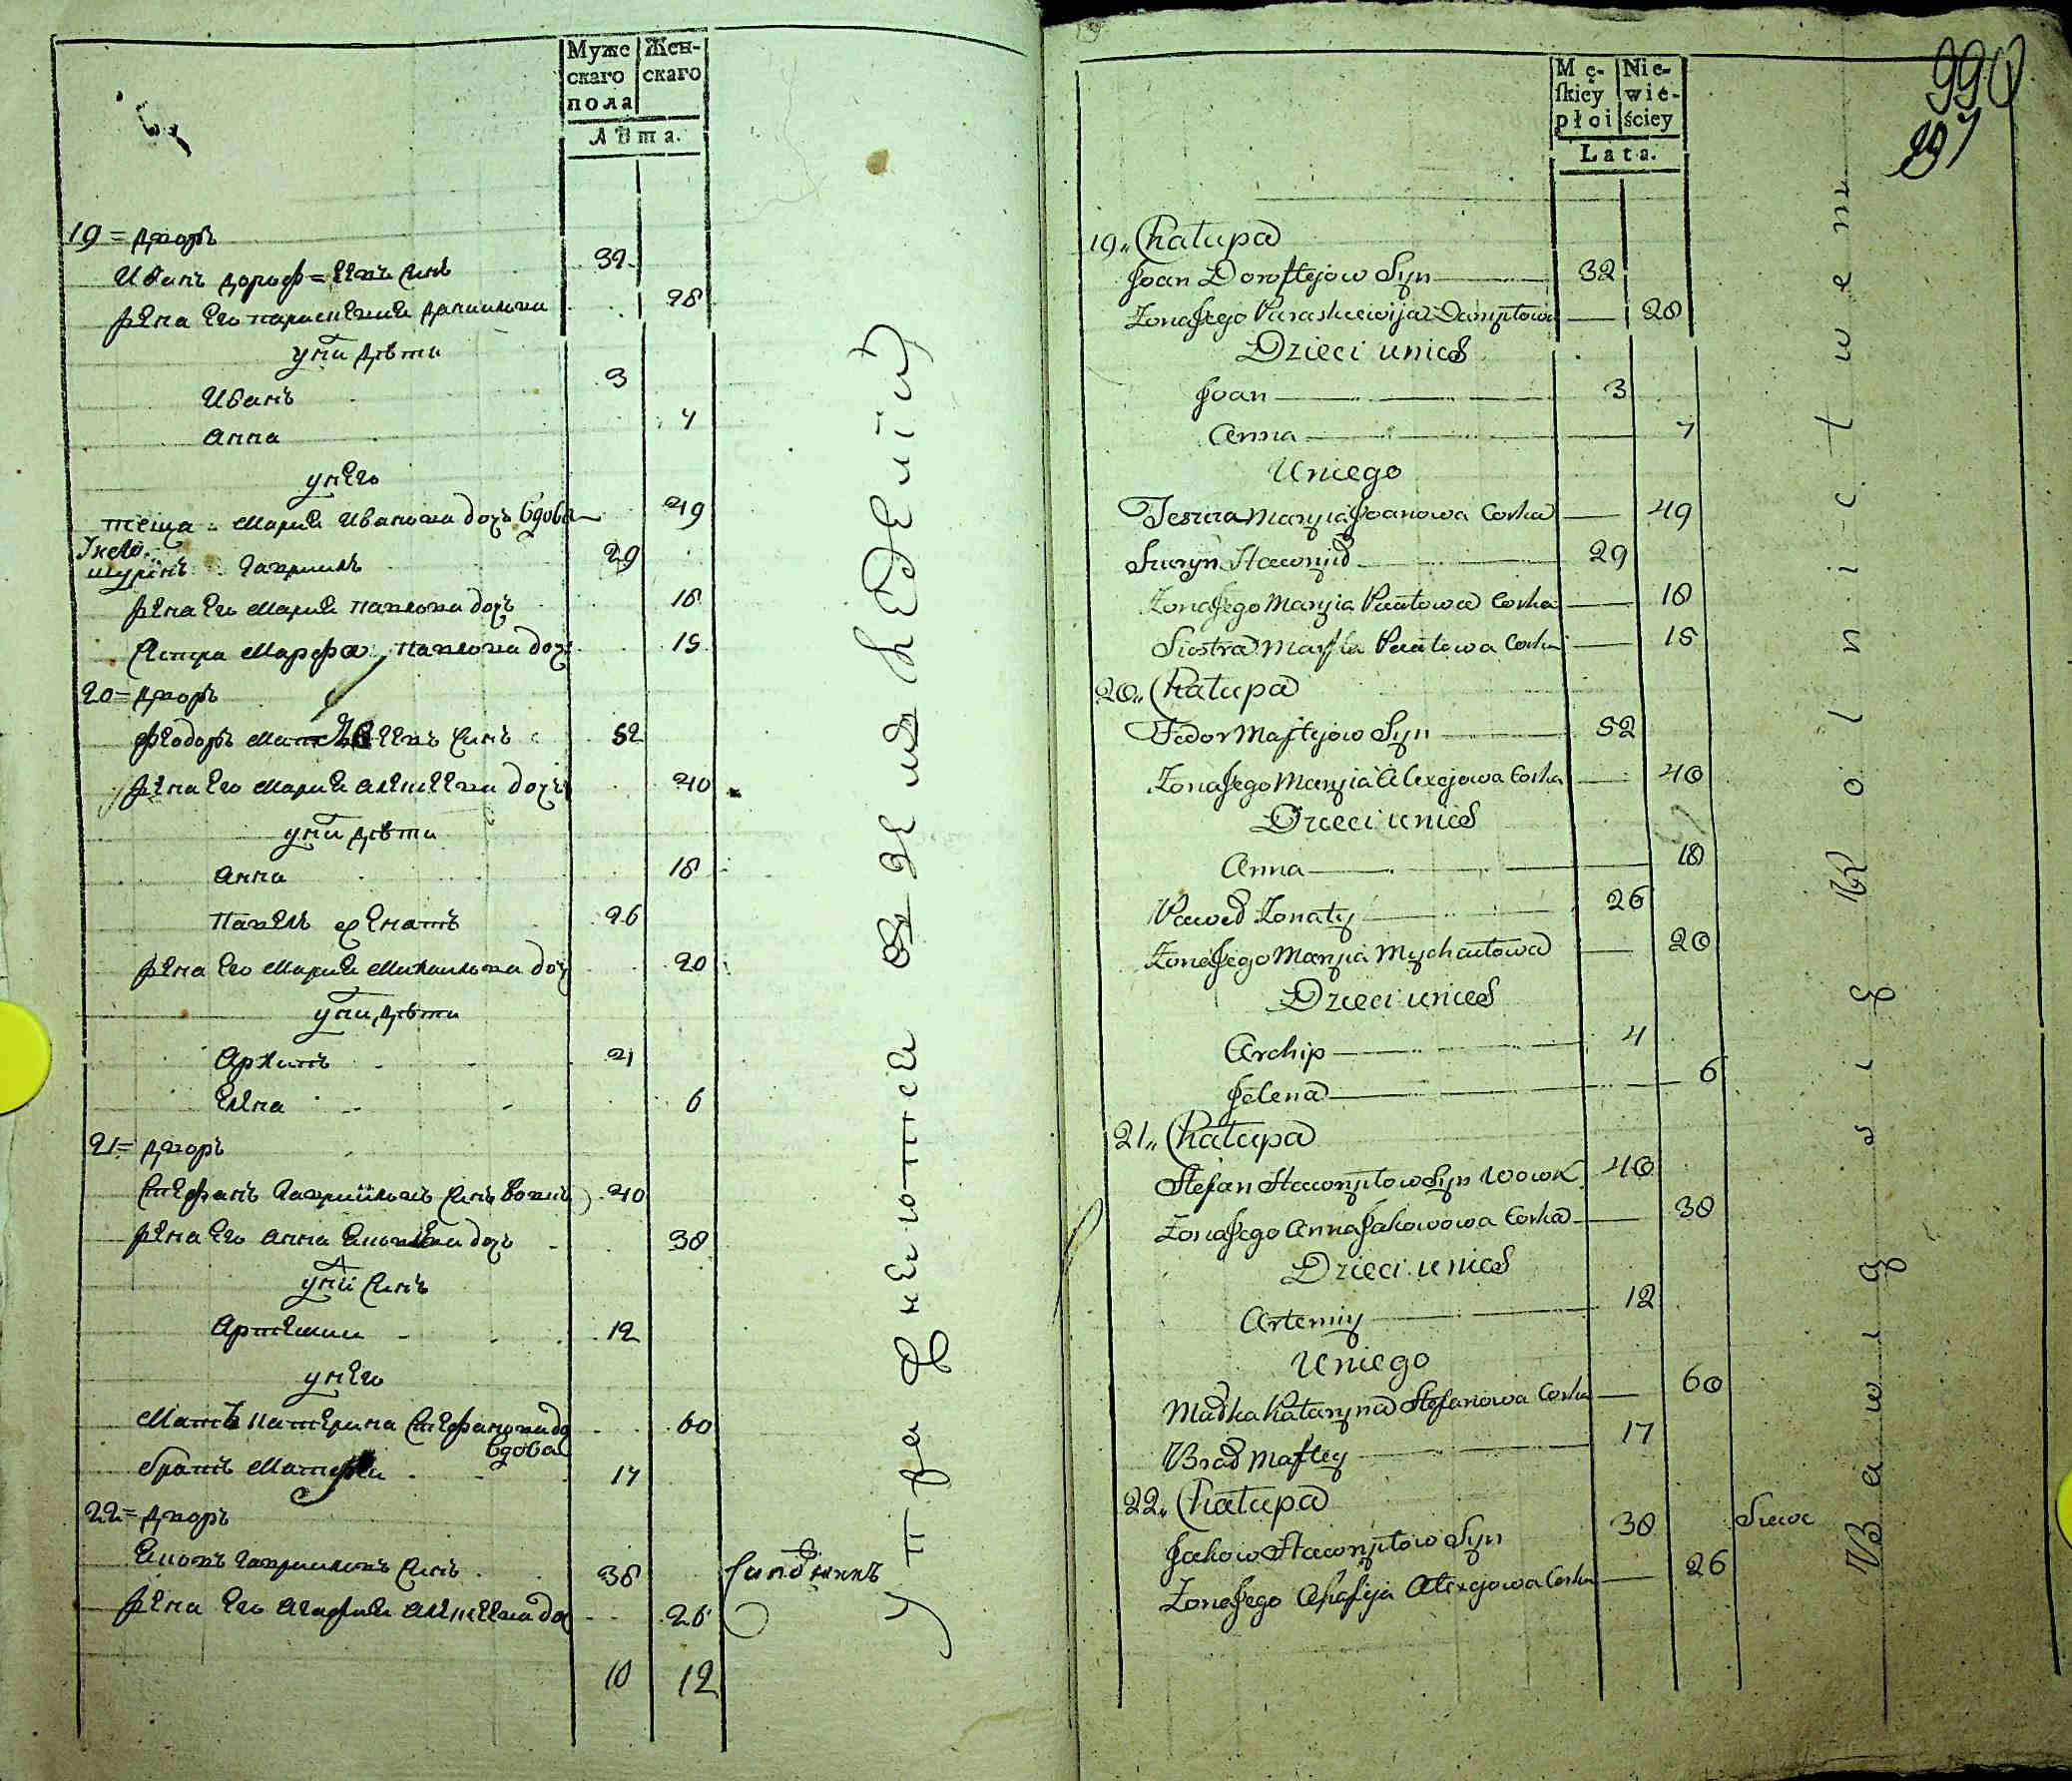 Муже Жен-
скаго скаго
пола
Лѣта.
19 = дворъ
Иванъ дороф=еевъ синъ 32
жена его параскевия даниилова 28
у ни дѣти
Иванъ 3
Анна 4
у него
теща Мария Иванова дочъ вдова 49
шуринъ Гавриилъ 29
жена его Мария павлова дочъ 18
сестра Марфа павлова дочъ 15
20 = дворъ
Феодоръ Матвеевъ синъ 52
жена его Мария алексеева дочъ 40
у ни дѣти
Анна 18
павелъ женатъ 26
жена его Мария Михаилова доч 20
у ни дѣти
Архипъ 4
Елена 6
21 = дворъ
Стефанъ Гавриїловъ синъ вовкъ 40
жена его анна Яковлева дочъ 38
у ни синъ
Артемии 12
у него
Мать катерина Стефанова до 60
вдова
братъ Матфеи 17
22 = дворъ
Яковъ Гавриловъ синъ 38
жена его Агафия алексеева до 26
10 12
упражнеются въ земледелїи
Mę- Nie-
ſkiey wie-
płci ściey
Lata.
990
19„ Chałupa
Joan Doroftejow Syn 32
Zona Jego Paraskiewija Danyłowa 28
Dzieci unich
Joan 3
Anna 4
Uniego
Teszcza Maryia Joanowa Corka 49
Szuryn Hawrył 29
Zona Jego Maryia Pawłowa Corka 18
Siostra Marfta Pawłowa Corka 15
20„ Chałupa
Fedor Maftejow Syn 52
Zona Jego Maryia Alexejowa Corka 40
Dzieci unich
Anna 18
Paweł Zonaty 26
Zona Jego Maryia Mychaiłowa 20
Dzieci unich
Archip 4
Jelena 6
21„ Chałupa
Stefan Hawryłow Syn Wowk 40
Zona Jego Anna Jakowowa Corka 38
Dzieci unich
Artemiy 12
Uniego
Matka Kataryna Stefanowa Corka 60
Brat Maftey 17
22„ Chałupa
Jakow Hawryłow Syn 38
Zona Jego Ahafija Alexejowa Corka 26
Bawią się Rolnictwem